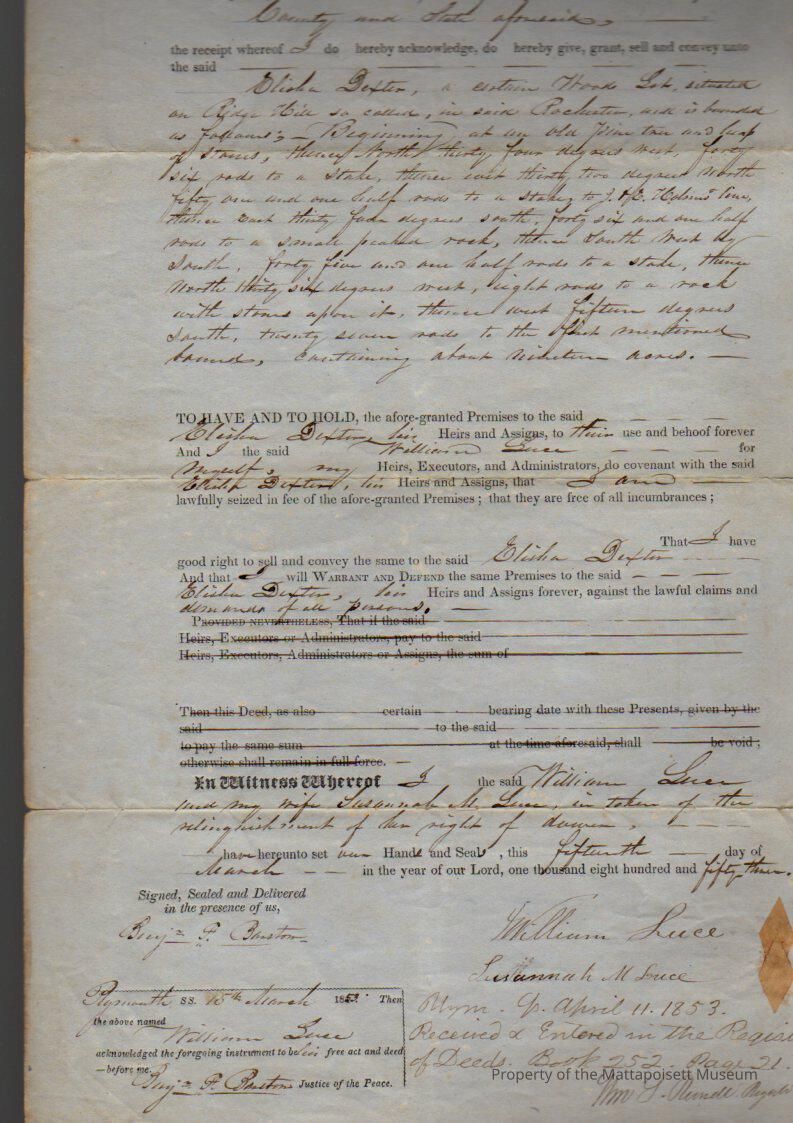 County and State aforesaid,
the receipt whereof I do hereby acknowledge, do hereby give, grant, sell and convey unto
the said
Elisha Dexter, a certain Wood Lot, situated
on Ridge Hill so called, in said Rochester, and is bounded
as follows; Beginning at an old pine tree and heap
of stones, thence North thirty four degrees west, forty
six rods to a stake, thence east thirty two degrees North
fifty one and one half rods to a stake to J. & Holmes' line,
thence East thirty four degrees south, forty six and one half
rods to a small peaked rock, thence South West by
South, forty five and one half rods to a stake, thence
North thirty six degrees west, eight rods to a rock
with stones upon it, thence west fifteen degrees
South, twenty seven rods to the first mentioned
bound, containing about nineteen acres.
TO HAVE AND TO HOLD, the afore-granted Premises to the said
Elisha Dexter, his Heirs and Assigns, to their use and behoof forever
And I the said William Luce for
myself, my Heirs, Executors, and Administrators, do covenant with the said
Elisha Dexter, his Heirs and Assigns, that I am
lawfully seized in fee of the afore-granted Premises ; that they are free of all incumbrances ;
That I have
good right to sell and convey the same to the said Elisha Dexter
And that I will WARRANT AND DEFEND the same Premises to the said
Elisha Dexter, his Heirs and Assigns forever, against the lawful claims and
demands of all persons.
PROVIDED NEVERTHELESS, That if the said
Heirs, Executors or Administrators, pay to the said
Heirs, Executors, Administrators or Assigns, the sum of
Then this Deed, as also certain bearing date with these Presents, given by the
said to the said
to pay the same sum at the time aforesaid, shall be void ;
otherwise shall remain in full force.
In Witness Whereof I the said William Luce
and my wife Susannah M. Luce, in token of the
relinquishment of her right of dower,
have hereunto set our Hands and Seals, this fifteenth day of
March in the year of our Lord, one thousand eight hundred and fifty-three.
Signed, Sealed and Delivered
in the presence of us,
Benj= F. Barstow
William Luce
Susannah M Luce
Plymouth ss. 15th March 1853. Then
the above named
William Luce
acknowledged the foregoing instrument to be his free act and deed
—before me,
Benj= F. Barstow Justice of the Peace.
Plym. April 11. 1853.
Received & Entered in the Regis
of Deeds. Book 252. Page 21.
Property of the Mattapoisett Museum
Wm S. Russell Register